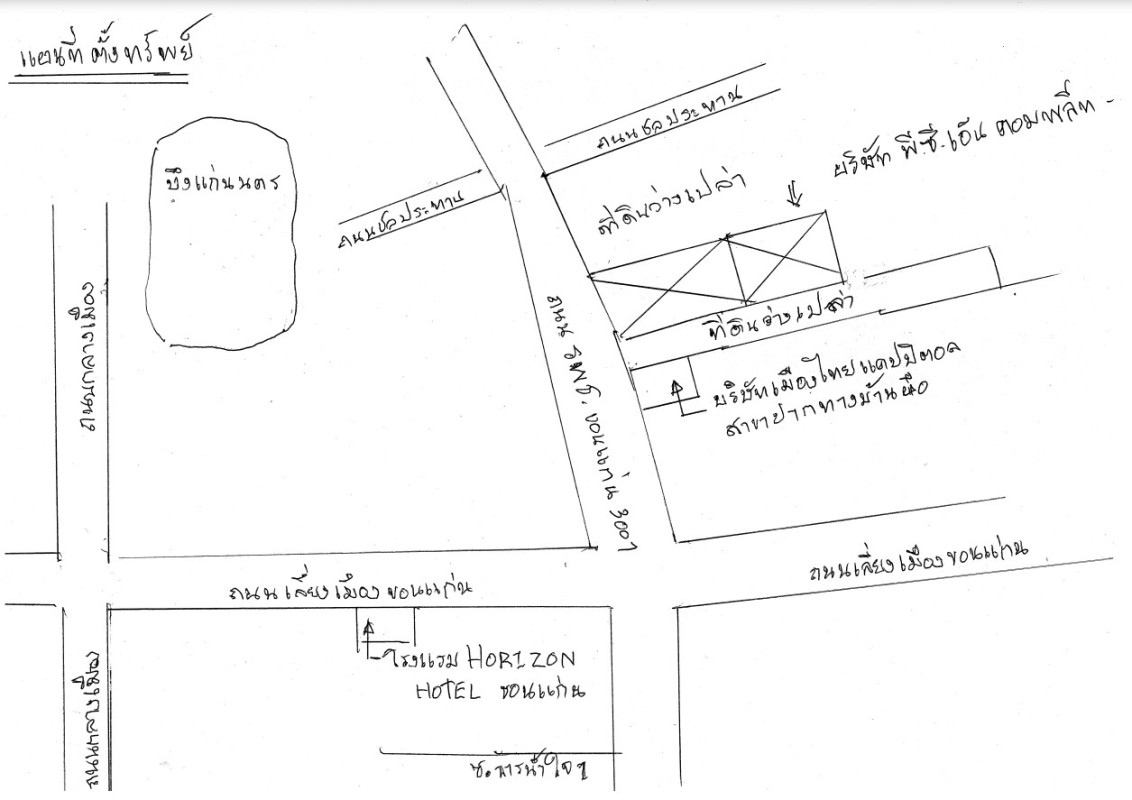 แผนที่ตั้งทรัพย์
ถนนชลประทาน
บริษัท พี.ซี.เอ็น คอมพลีท
บึงแก่นนคร
ถนนชลประทาน
ที่ดินว่างเปล่า
ถนนกลางเมือง
ถนน รพช. ขอนแก่น 3007
ที่ดินว่างเปล่า
บริษัทเมืองไทยแคปปิตอล
สาขาปากทางบ้านผือ
ถนนเลี่ยงเมืองขอนแก่น
ถนนเลี่ยงเมืองขอนแก่น
โรงแรม HORIZON
HOTEL ขอนแก่น
ถนนกลางเมือง